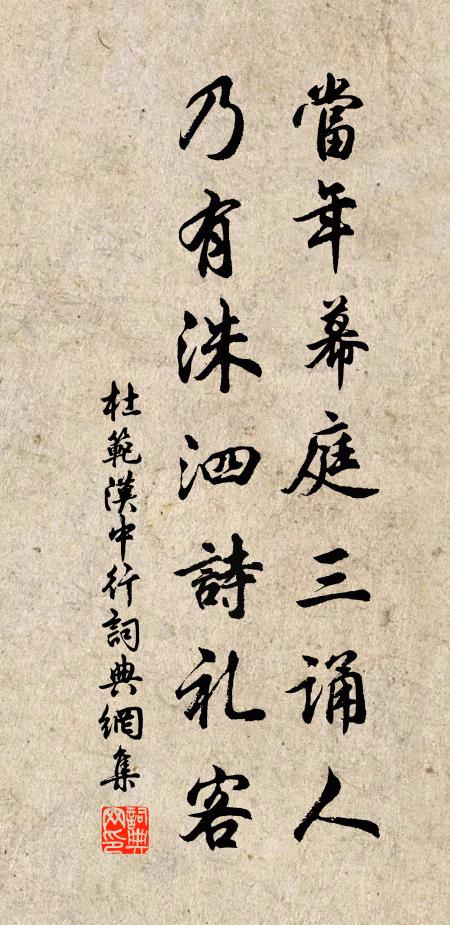 當年幕庭三诵人
乃有洙泗詩礼客
杜範漢中行詞典網集
詞典网印